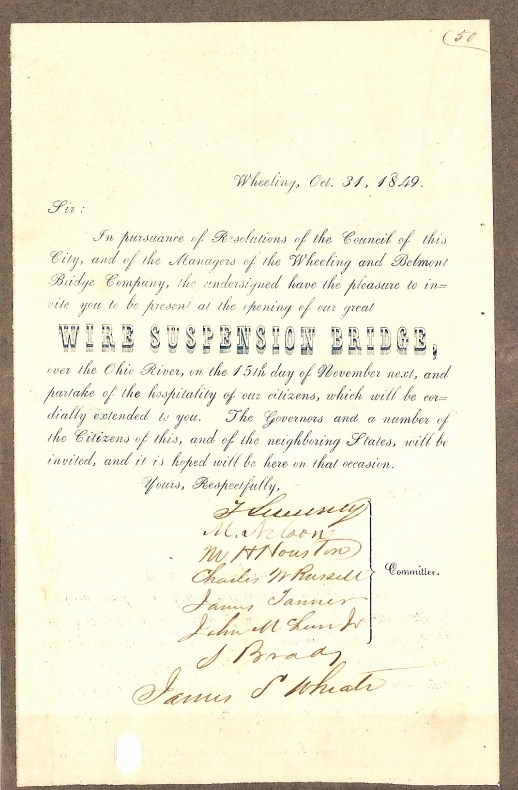 50
Wheeling, Oct. 31, 1849.
Sir:
In pursuance of Resolutions of the Council of this
City, and of the Managers of the Wheeling and Belmont
Bridge Company, the undersigned have the pleasure to in=
vite you to be present at the opening of our great
WIRE SUSPENSION BRIDGE,
over the Ohio River, on the 15th day of November next, and
partake of the hospitality of our citizens, which will be cor=
dially extended to you. The Governors and a number of
the Citizens of this, and of the neighboring States, will be
invited, and it is hoped will be here on that occasion.
Yours, Respectfully,
M. Nelson
M H Houston
Charles W Russell
Committee.
James Tanner
John M
S Brady
James S Wheat